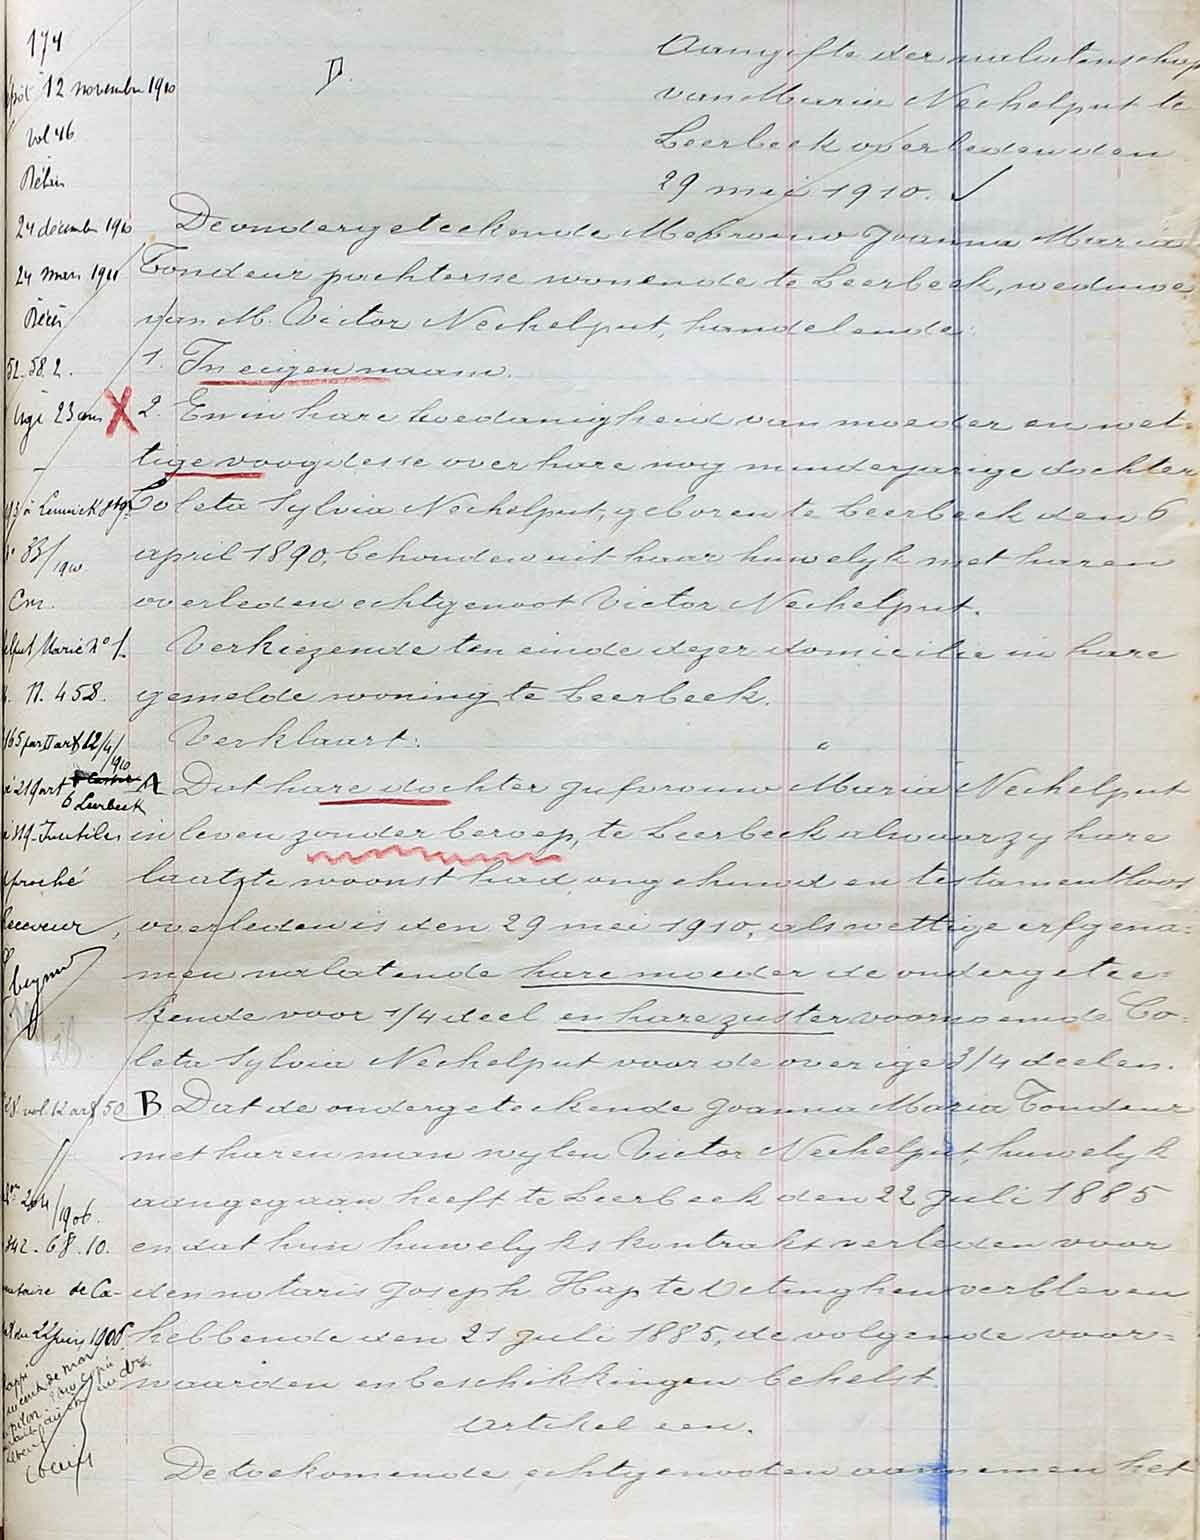 174
12 novembre 1910
D.
Aangifte der nalatenschap
van Maria Nechelput te
vol 46
Leerbeek overleden den
29 mei 1910. ✓
24 décembre 1910
De ondergeteekende Mevrouw Joanna Maria
24 mars 1911
Tondeur pachteresse wonende te Leerbeek, weduwe
Décès
van M. Victor Nechelput, handelende:
52. 58. 2.
1. In eigen naam.
âgé 23 ans X
2. En in hare hoedanigheid van moeder en wet-
tige voogdesse over hare nog minderjarige dochter
à Lennick
Coleta Sylvia Nechelput, geboren te Leerbeek den 6
33/1910
april 1890, behouden uit haar huwelyk met haren
Cm.
overleden echtgenoot Victor Nechelput.
Marie No 1.
Verkiezende ten einde dezer domicilie in hare
N. 458.
gemelde woning te Leerbeek.
12/4/1910
Verklaart:
Leerbeek
A Dat hare dochter Jufvrouw Maria Nechelput
Inutiles
in leven zonder beroep, te Leerbeek alwaar zy hare
laatste woonst had, ongehuwd en testamentloos
Receveur,
overleden is den 29 mei 1910, als wettige erfgena-
men nalatende hare moeder de ondergetee-
kende voor 1/4 deel en hare zuster voornoemde Co-
leta Sylvia Nechelput voor de overige 3/4 deelen.
vol 12 art 50
B Dat de ondergeteekende Joanna Maria Tondeur
met haren man wylen Victor Nechelput, huwelyk
204/1906.
aangegaan heeft te Leerbeek den 22 Juli 1885
342. 68. 10.
en dat hun huwelyks kontrakt verleden voor
de Ca-
den notaris Joseph Hap te Vetinghen verbleven
du 22 juin 1906
hebbende den 21 Juli 1885, de volgende voor-
waarden en beschikkingen behelst.
Artikel een.
De toekomende echtgenooten aannemen het